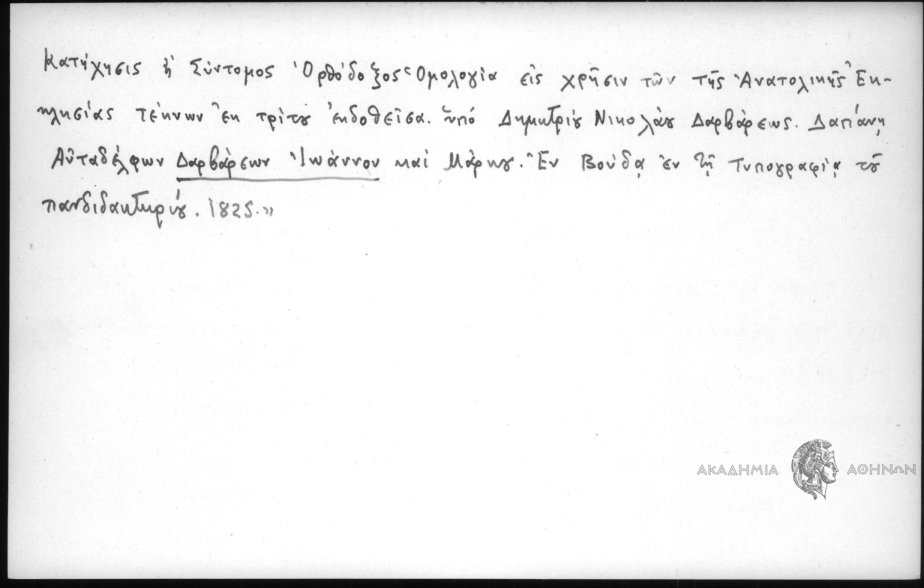 Κατήχησις ἢ Σύντομος Ὀρθόδοξος Ὁμολογία εἰς χρῆσιν τῶν τῆς Ἀνατολικῆς Ἐκ-
κλησίας τέκνων ἐκ τρίτου ἐκδοθεῖσα. ὑπό Δημητρίου Νικολάου Δαρβάρεως. Δαπάνῃ
Αὐταδέλφων Δαρβάρεων Ἰωάννου καὶ Μάρκου. Ἐν Βούδᾳ ἐν τῇ Τυπογραφίᾳ τοῦ
πανδιδακτηρίου. 1825.»
ΑΚΑΔΗΜΙΑ ΑΘΗΝΩΝ